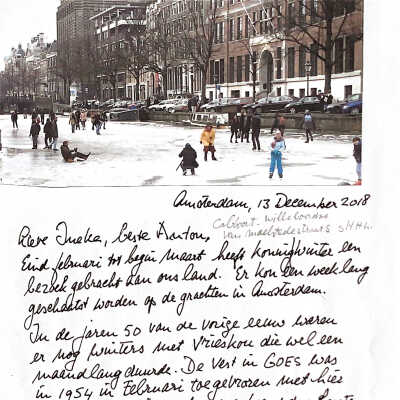 Amsterdam, 13 December 2018
Lieve Ineka, beste Anton,
Eind februari tot begin maart heeft koning winter een
bezoek gebracht aan ons land. Er kon een week lang
geschaatst worden op de grachten in Amsterdam.
In de jaren 50 van de vorige eeuw waren
er nog winters met vrieskou die wel een
maand lang duurde. De vest in GOES was
in 1954 in februari toegevroren met hier